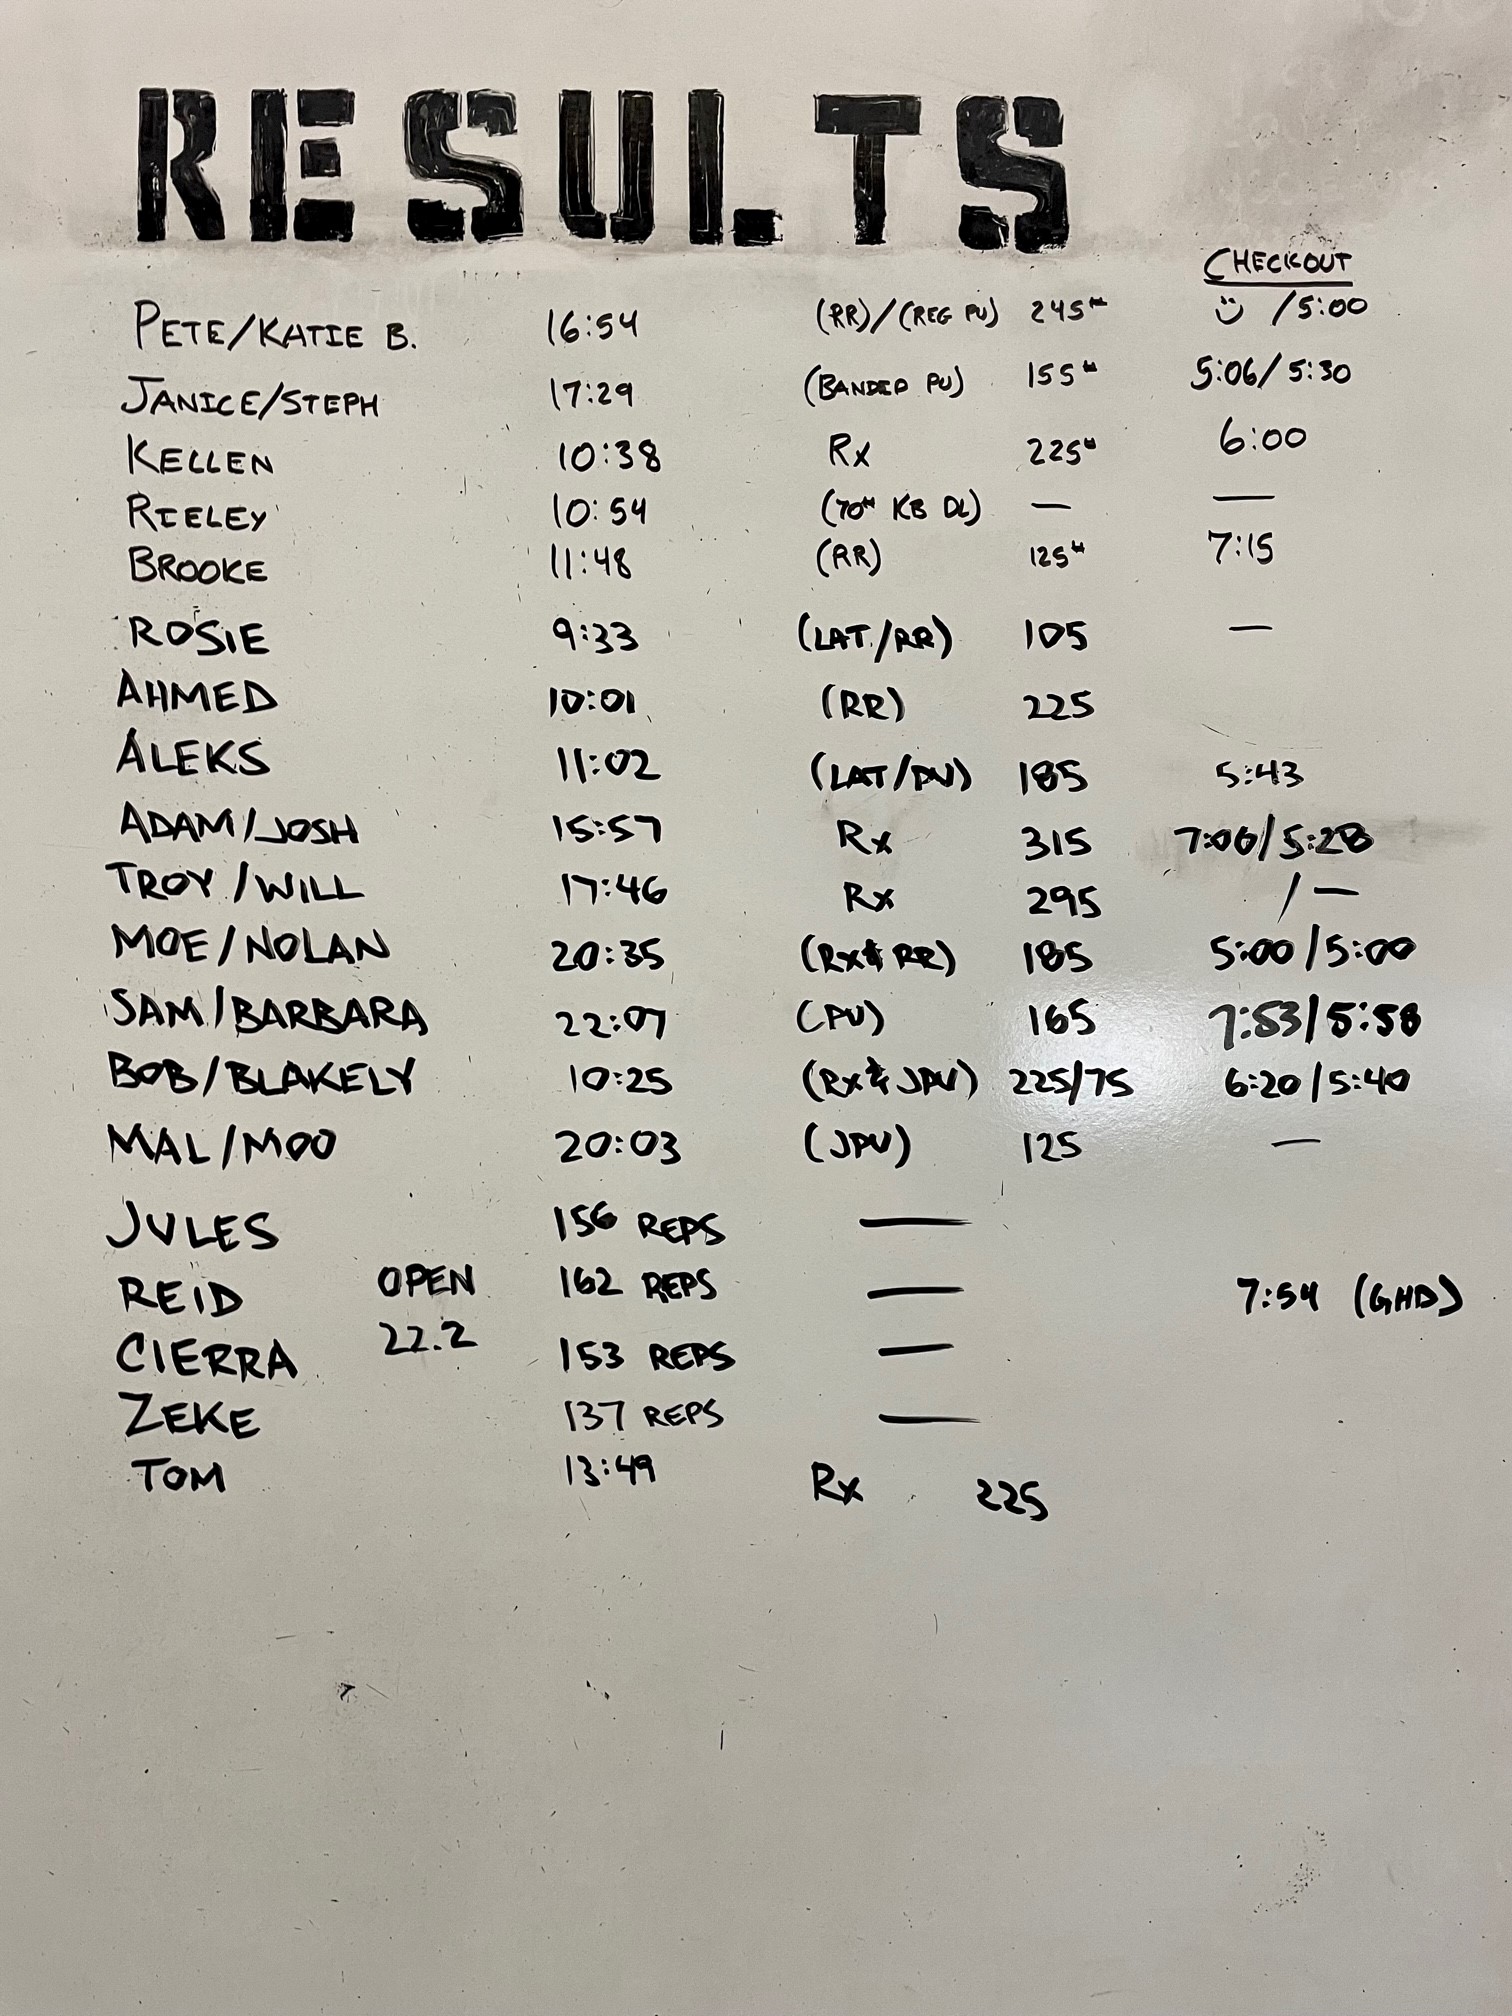 RESULTS
CHECKOUT
PETE/KATIE B. 16:54 (RR)/(REG PU) 245# /5:00
JANICE/STEPH 17:29 (BANDED PU) 155# 5:06/5:30
KELLEN 10:38 Rx 225# 6:00
RIELEY 10:54 (70# KB DL) — —
BROOKE 11:48 (RR) 125# 7:15
ROSIE 9:33 (LAT./RR) 105 —
AHMED 10:01 (RR) 225
ALEKS 11:02 (LAT/PU) 185 5:43
ADAM/JOSH 15:57 Rx 315 7:06/5:28
TROY/WILL 17:46 Rx 295 / —
MOE/NOLAN 20:35 (Rx & RR) 185 5:00/5:00
SAM/BARBARA 22:07 (PU) 165 7:53/5:58
BOB/BLAKELY 10:25 (Rx & JPU) 225/75 6:20/5:40
MAL/MOO 20:03 (JPU) 125 —
JULES 156 REPS —
REID OPEN 162 REPS — 7:54 (GHD)
CIERRA 22.2 153 REPS —
ZEKE 137 REPS —
TOM 13:49 Rx 225